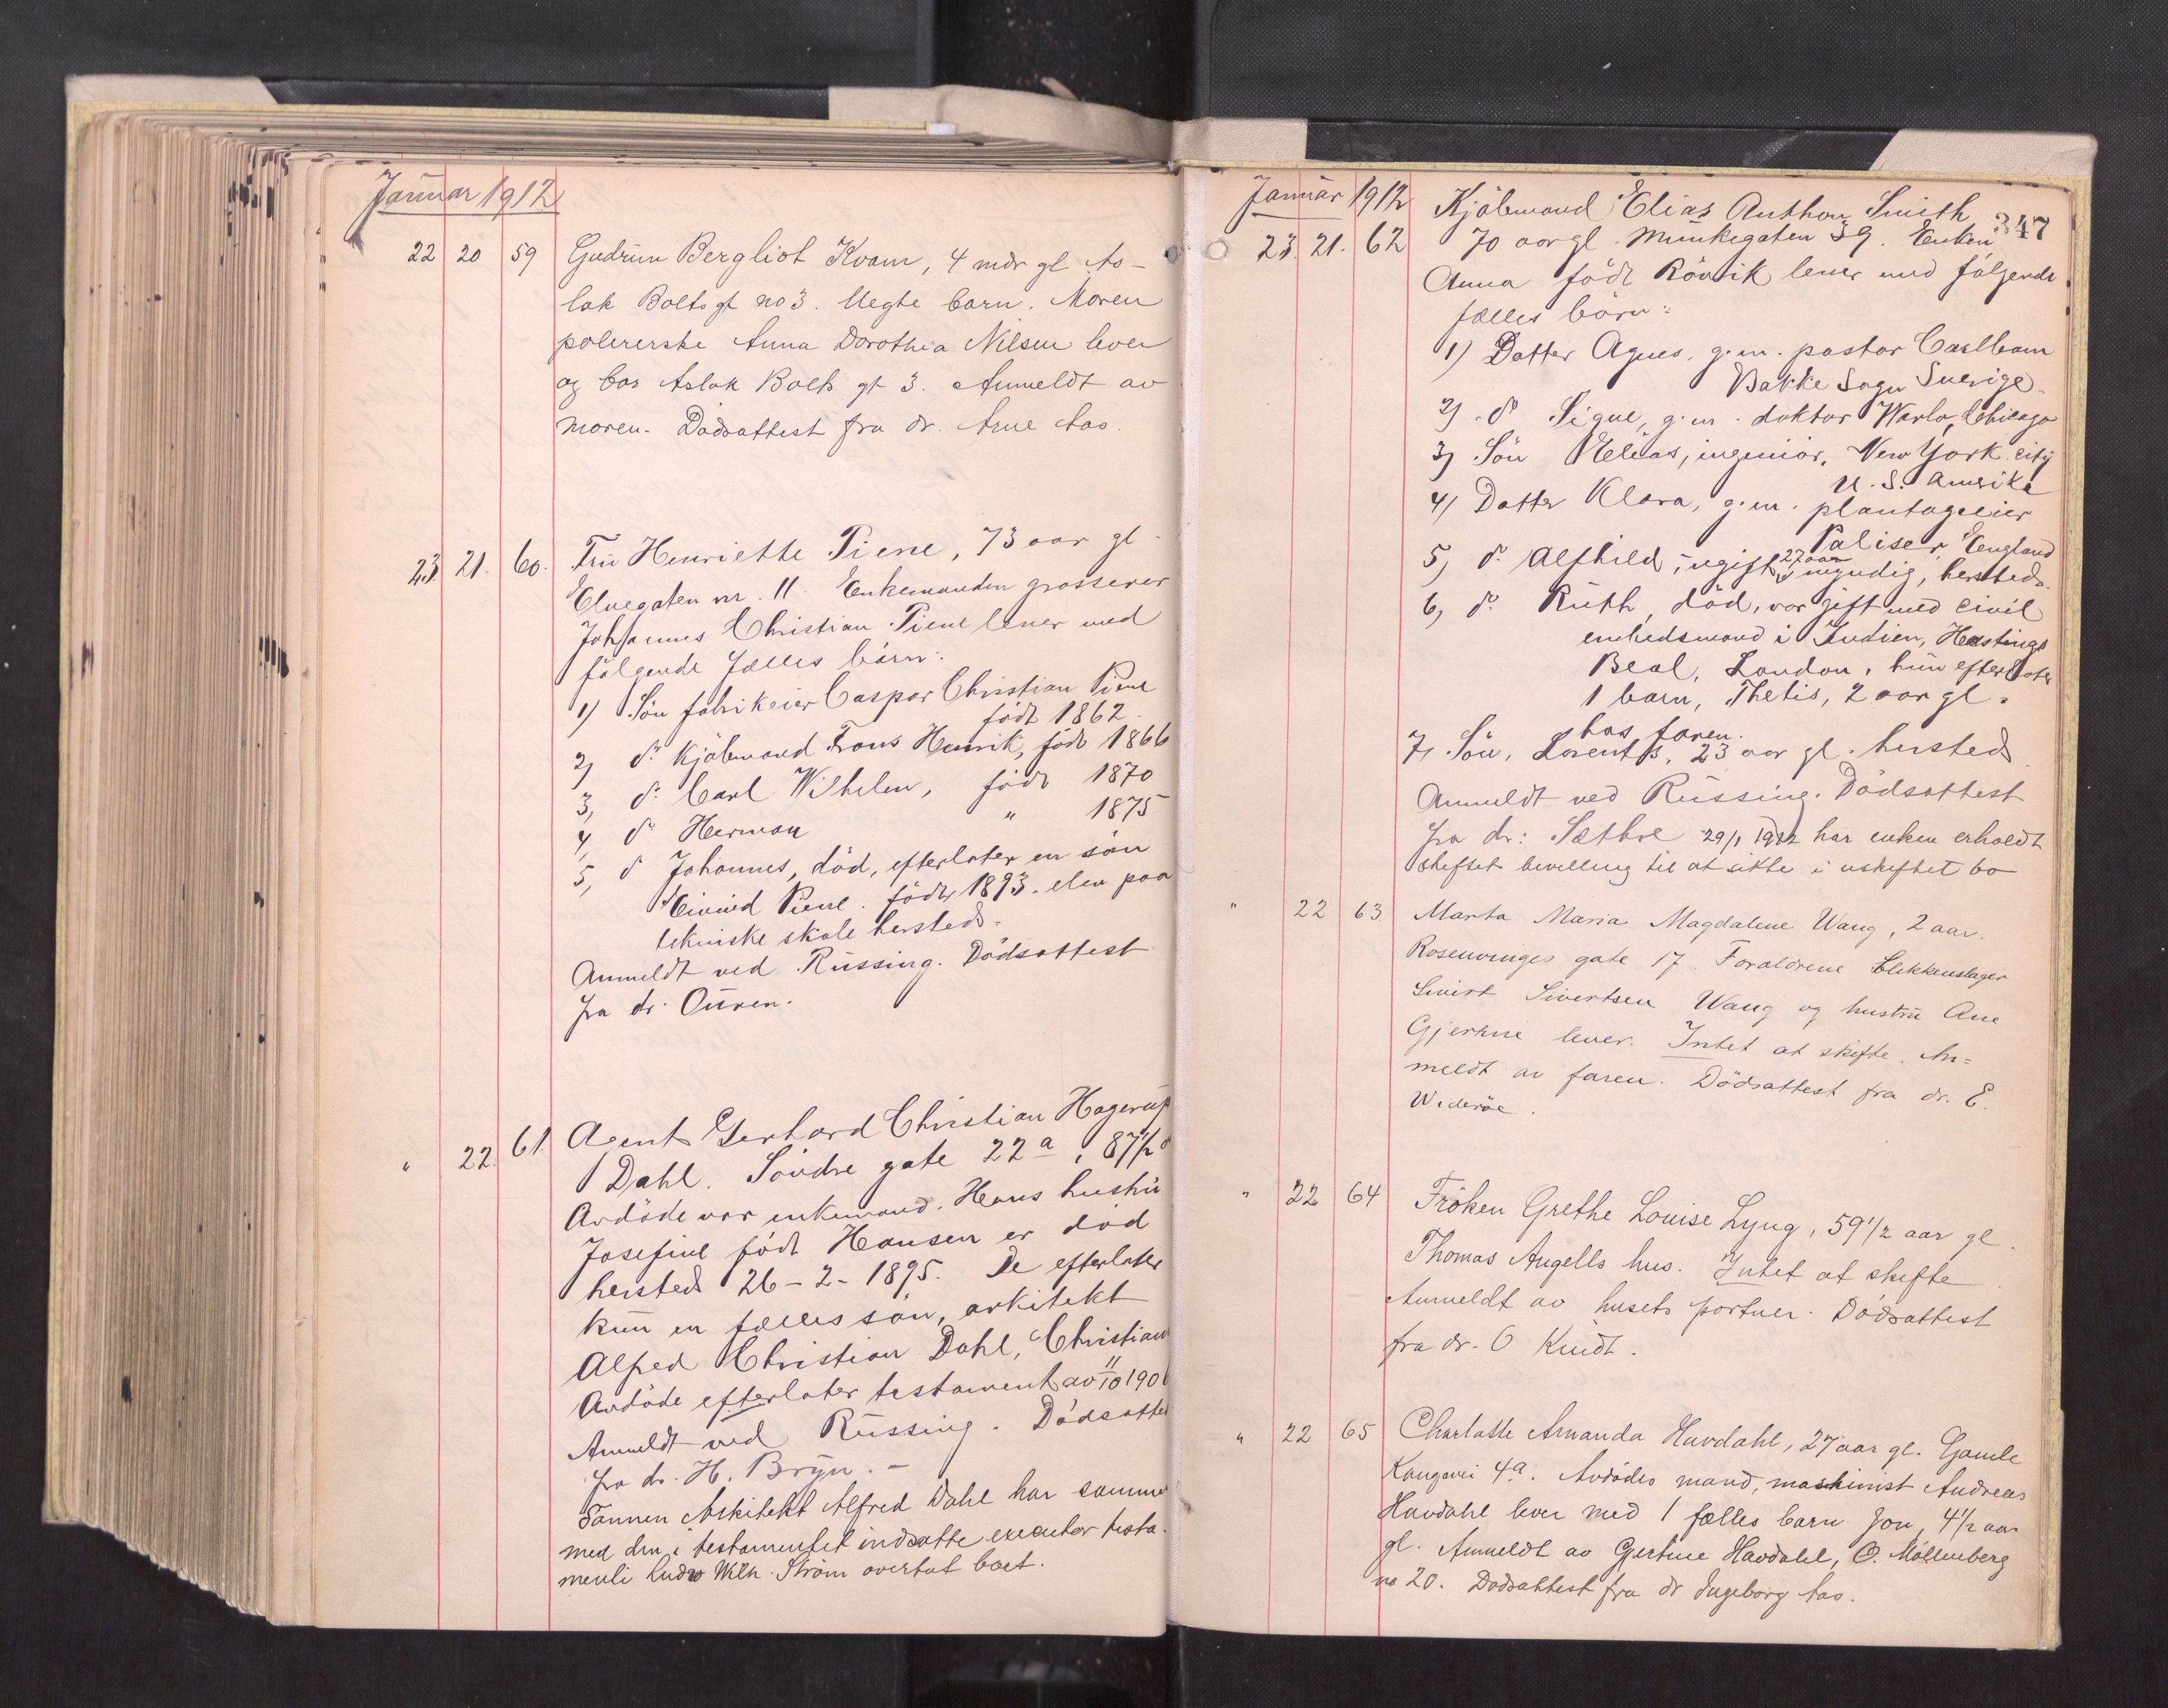 Januar 1912
22 20 59 Gudrun Bergliot Kvam, 4 mdr gl As-
lak Bolts gt no 3. Uegte barn. Moren
polererske Anna Dorothea Nilsen lever
og bor Aslak Bolts gt 3. Anmeldt av
moren. Dødsattest fra dr. Arne Aas.
23 21. 60. Fru Henriette Piene, 73 aar gl.
Elvegaten nr. 11. Enkemanden grosserer
Johannes Christian Piene lever med
følgende fælles børn:
1) Søn fabrikeier Caspar Christian Piene
født 1862.
2) do Kjøbmand Frans Henrik, født 1866
3, do Carl Wilhelm, født 1870
4, do Herman " 1875
5, do Johannes, död, efterlater en søn
Eivind Piene. født 1893. elev paa
tekniske skole hersteds.
Anmeldt ved Rüssing. Dödsattest
fra dr. Ouren.
" 22. 61 Agent Gerhard Christian Hagerup
Dahl. Söndre gate 22a, 87½
Avdøde var enkemand. Hans hustru
Josefine født Hansen er död
hersted 26-2-1895. De efterlater
kun en fælles søn, arkitekt
Alfred Christian Dahl, Christian
Avdøde efterlater testament av 11/10 190
Anmeldt ved Rüssing. Dödsattest
fra dr. H. Bryn. -
Sønnen Arkitekt Alfred Dahl har sammen
med den i testamentet indsatte executor testa-
menti Ludv Wilh. Strøm overtat boet.
Januar 1912
347
23. 21. 62 Kjøbmand Elias Anthon Smith
70 aar gl. Munkegaten 39. Enken
Anna født Rövik lever med følgende
fælles börn:
1) Datter Agnes, g.m. pastor Carlbom
Bakke Sogn Sverige
2) do Signe, g.m. doktor Warlo, Chicago
3) Søn Elias, ingeniør, New York city
U. S. Amerika
4) Datter Klara, g.m. plantageeier
Paliser, England
5) do Alfhild, ugift, 27 aar myndig, hersteds.
6, do Ruth, död, var gift med civil
embedsmand i Indien, Hastings
Beal, London, hun efterlater
1 barn, Thetis, 2 aar gl.
hos faren.
7, Søn, Lorents, 23 aar gl. hersted
Anmeldt ved Rüssing. Dödsattest
fra dr: Sæthre 29/1 1912 har enken erholdt
skiftet bevilling til at sitte i uskiftet bo
" 22 63 Marta Maria Magdalene Wang, 2 aar.
Rosenvinges gate 17. Forældrene blikkenslager
Sivert Sivertsen Wang og hustru Ane
Gjertine lever. Intet at skifte. An=
meldt av faren. Dödsattest fra dr. E.
Widerøe.
" 22 64 Fröken Grethe Louise Lyng, 59½ aar gl.
Thomas Angells hus. Intet at skifte
Anmeldt av husets portner. Dödsattest
fra dr. O Kindt.
" 22 65 Charlotte Amanda Havdahl, 27 aar gl. Gamle
Kongevei 4a. Avdødes mand, maskinist Andreas
Havdahl lever med 1 fælles barn Jon, 4½ aar
gl. Anmeldt av Gertine Havdahl, O. Möllenberg
no 20. Dødsattest fra dr Ingeborg Aas.